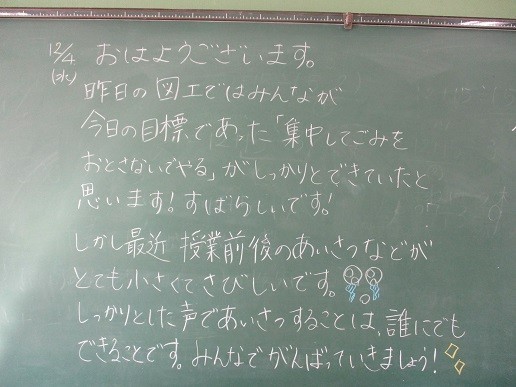 12/4 おはようございます。
(水)
昨日の図工ではみんなが
今日の目標であった「集中してごみを
おとさないでやる」がしっかりとできていたと
思います!すばらしいです!
しかし最近 授業前後のあいさつなどが
とても小さくてさびしいです。
しっかりとした声であいさつすることは、誰にでも
できることです。みんなでがんばっていきましょう!